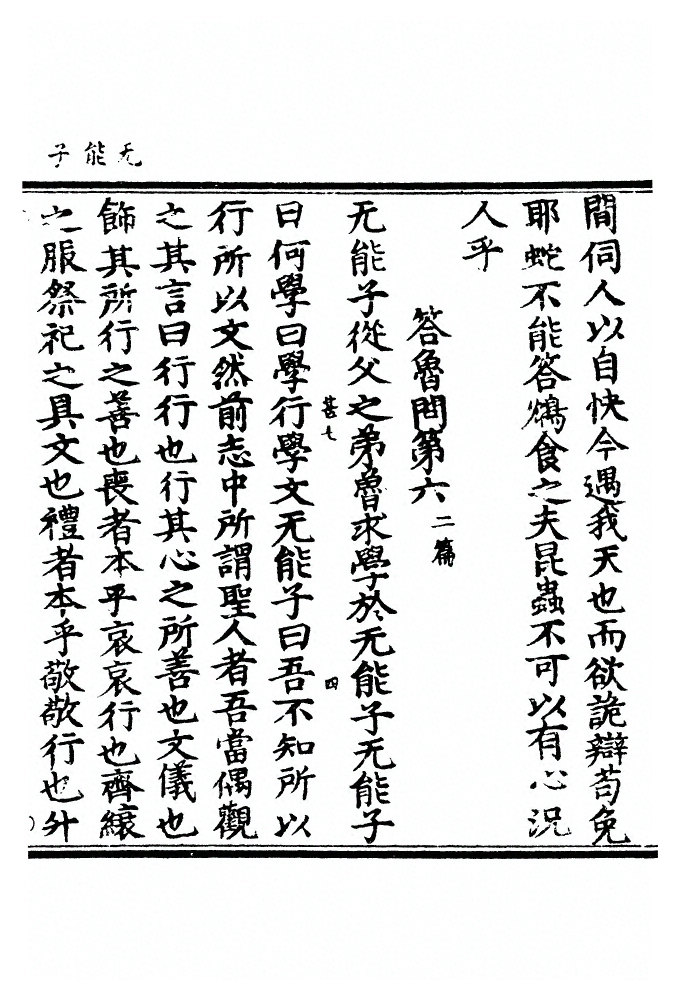 无能子
間伺人以自快今遇我天也而欲詭辯苟免
耶蛇不能答鴆食之夫昆蟲不可以有心況
人乎
答魯問第六二篇
无能子從父之弟魯求學於无能子无能子
甚七
四
曰何學曰學行學文无能子曰吾不知所以
行所以文然前志中所謂聖人者吾當偶觀
之其言曰行行也行其心之所善也文儀也
飾其所行之善也喪者本乎哀哀行也齊縗
之服祭祀之具文也禮者本乎敬敬行也升